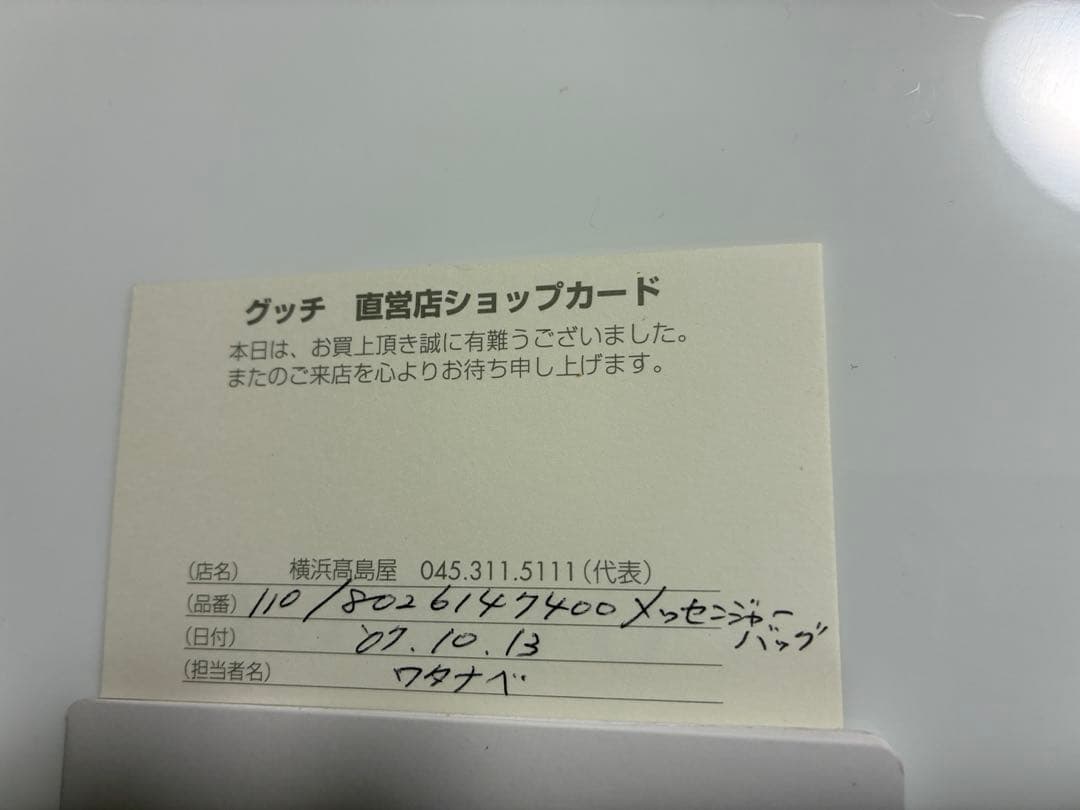 グッチ 直営店ショップカード
本日は、お買上頂き誠に有難うございました。
またのご来店を心よりお待ち申し上げます。
(店名) 横浜髙島屋 045.311.5111(代表)
(品番) 110/8026147400 メッセンジャー
バッグ
(日付) '07.10.13
(担当者名) ワタナベ